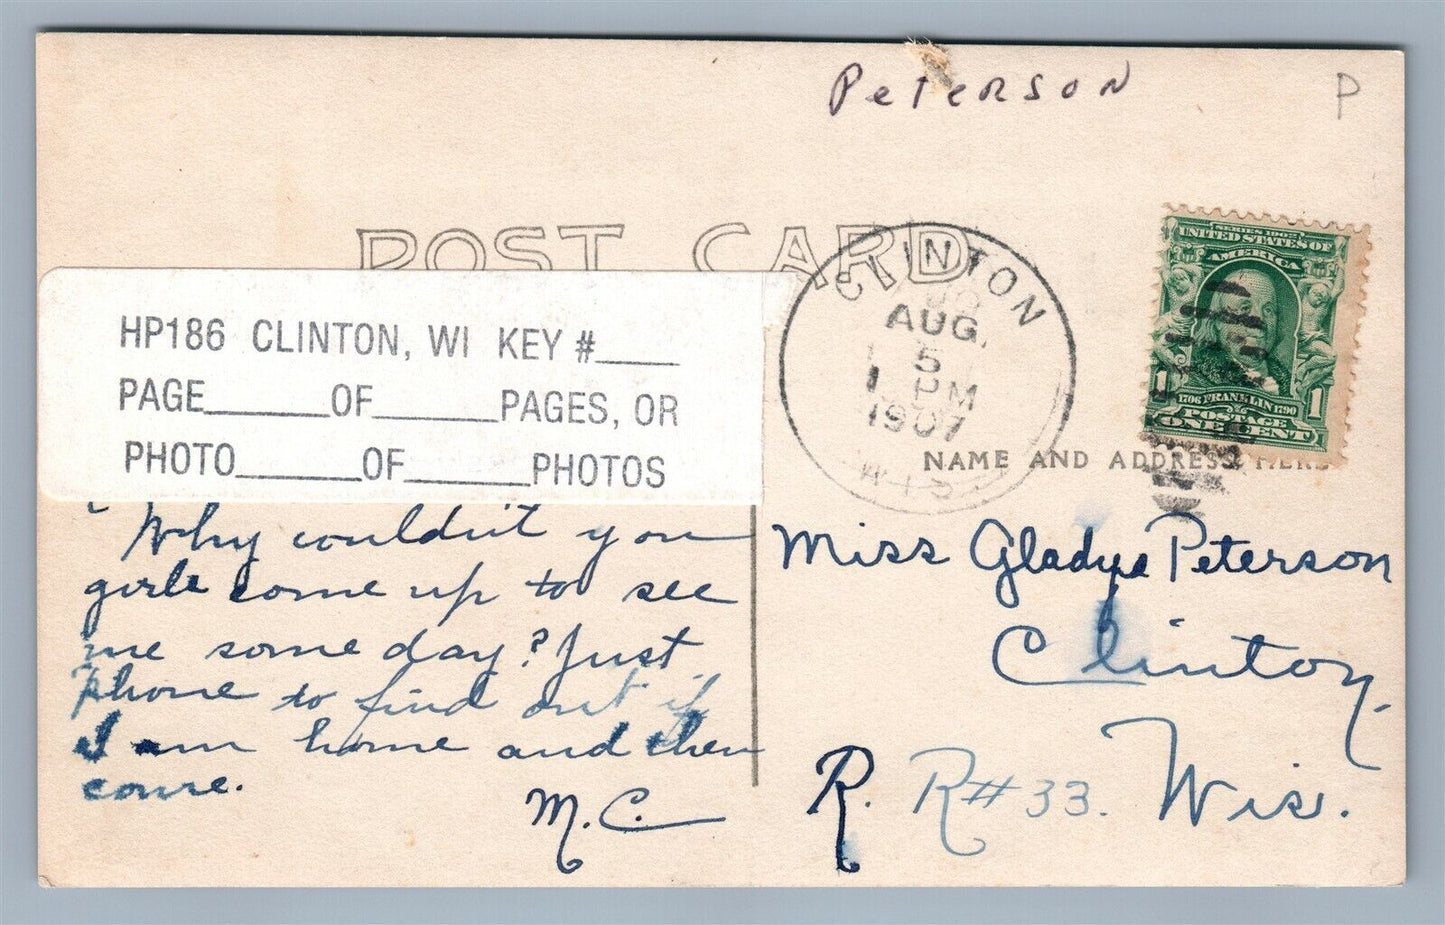 Peterson
P
POST CARD
CLINTON
AUG.
5
1 PM
1907
WIS
SERIES 1902
UNITED STATES OF
AMERICA
1 1
1706 FRANKLIN 1790
POSTAGE
ONE CENT
HP186 CLINTON, WI KEY #____
PAGE______OF______PAGES, OR
PHOTO______OF______PHOTOS
NAME AND ADDRESS HERE
Why couldn't you
girls come up to see
me some day? Just
phone to find out if
I am home and then
come.
M.C.
Miss Gladys Peterson
Clinton
R. R# 33. Wis.